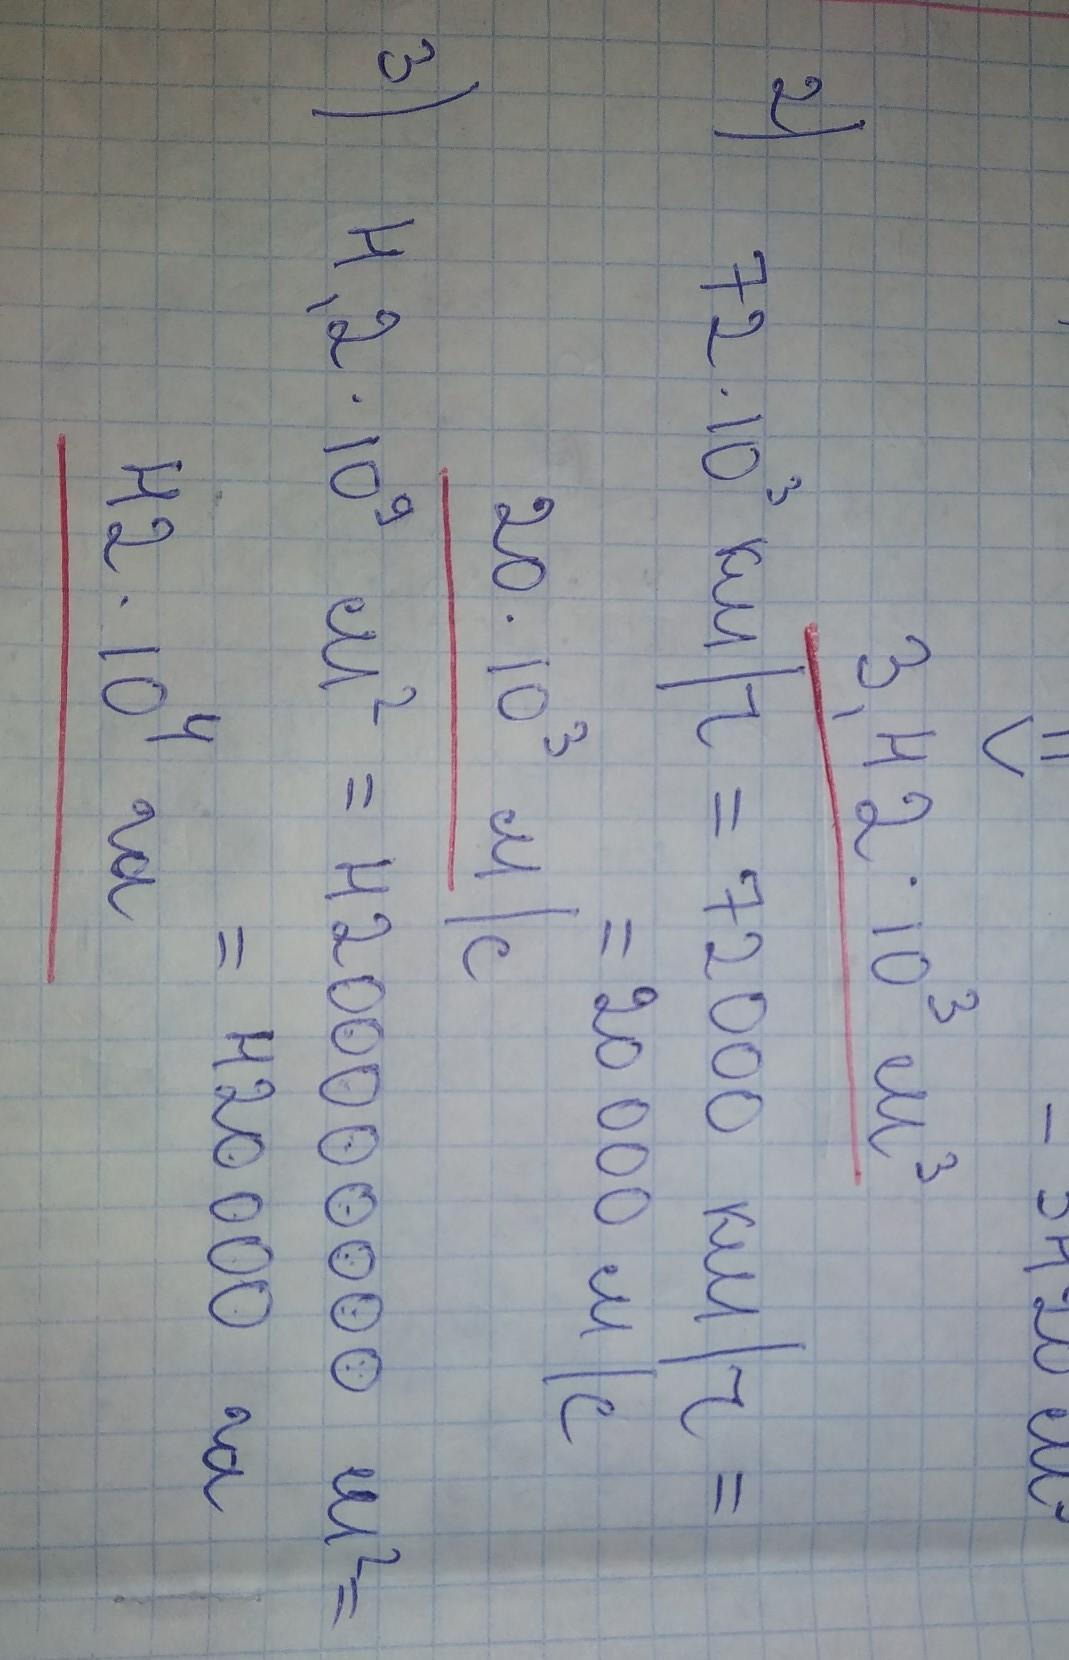 = 3420 м³
3,42 · 10³ м³
2) 72 · 10³ км/ч = 72000 км/ч =
= 20 000 м/с
20 · 10³ м/с
3) 4,2 · 10⁹ м² = 4200000000 м² =
= 420 000 га
42 · 10⁴ га